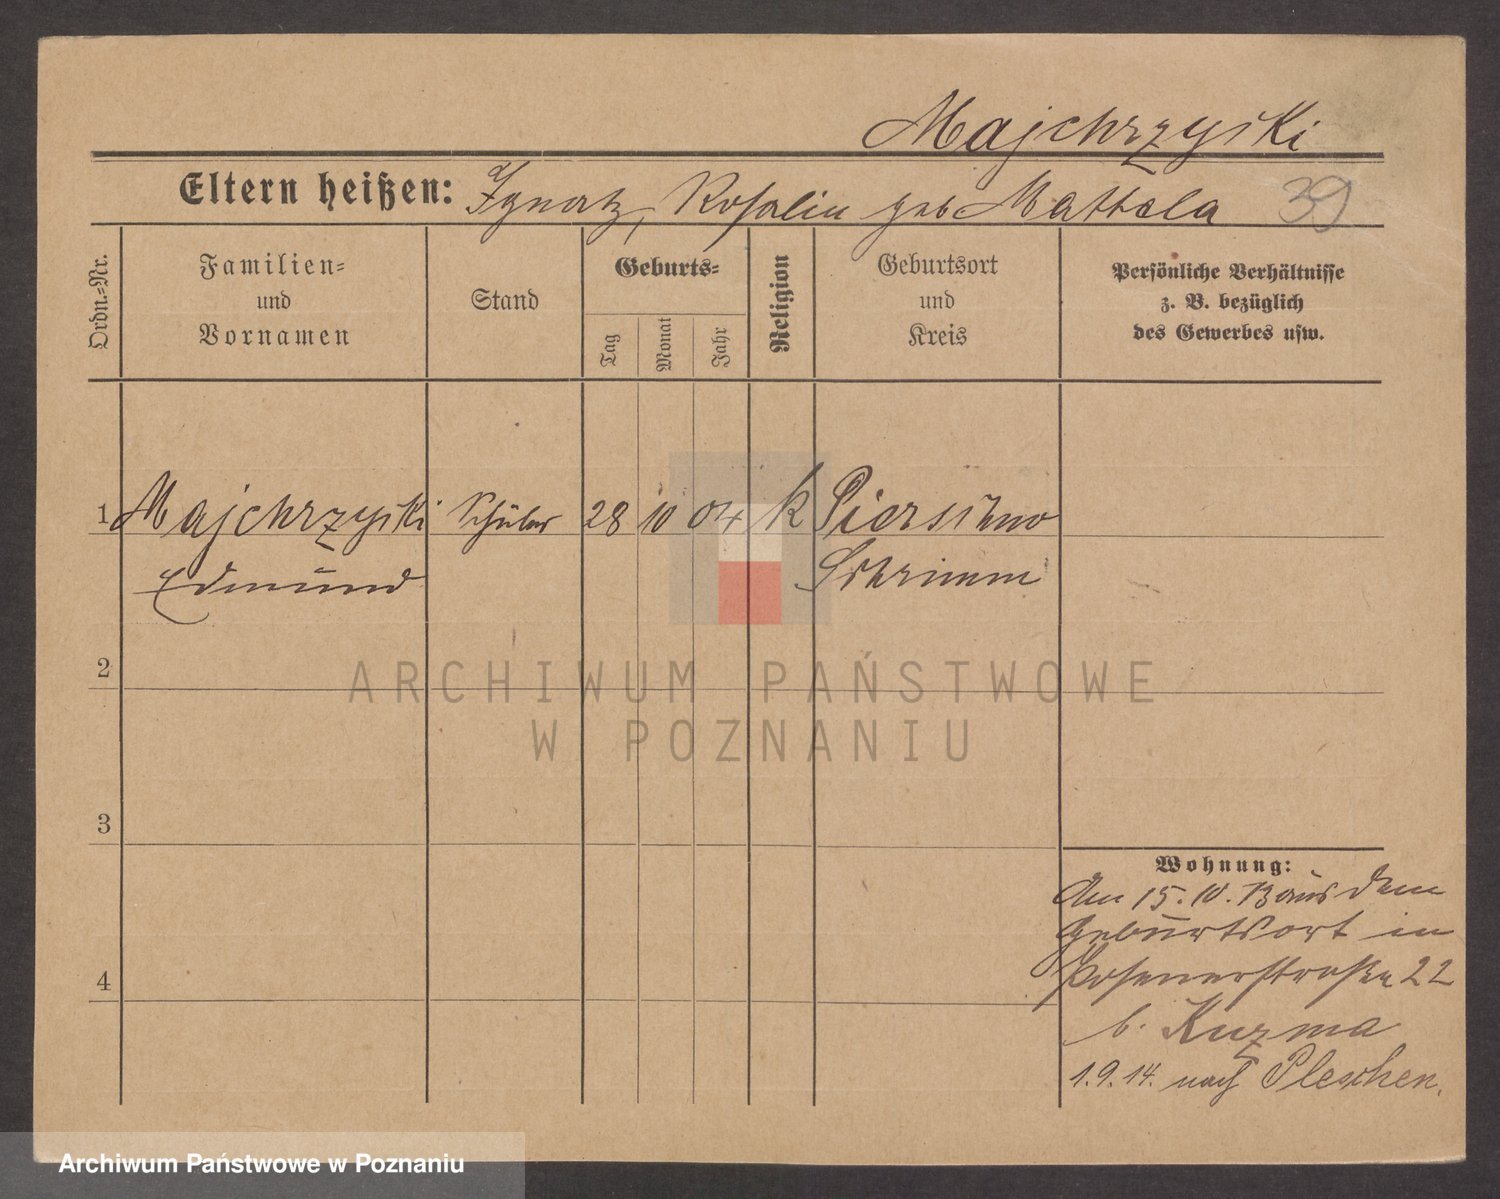 Majchrzyski
Eltern heißen: Ignatz, Rosalie geb Mattela
39
Ordn.-Nr.
Familien-
und
Vornamen
Stand
Geburts-
Tag
Monat
Jahr
Religion
Geburtsort
und
Kreis
Persönliche Verhältnisse
z. B. bezüglich
des Gewerbes usw.
1 Majchrzyski Schüler 28 10 04 k
Edmund Schrimm
ARCHIWUM PAŃSTWOWE
W POZNANIU
2
3
4
Wohnung:
Am 15. 10. 13 aus dem
Geburtsort in
Posenerstraße 22
b. Kuzma
1. 9. 14. nach Pleschen.
Archiwum Państwowe w Poznaniu